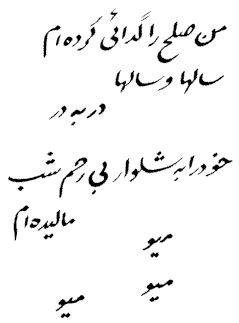 من صلح را گدائی کرده ام
سالها و سالها
در به در
خود را به شلوار بی رحم شب
مالیده ام
میو
میو
میو